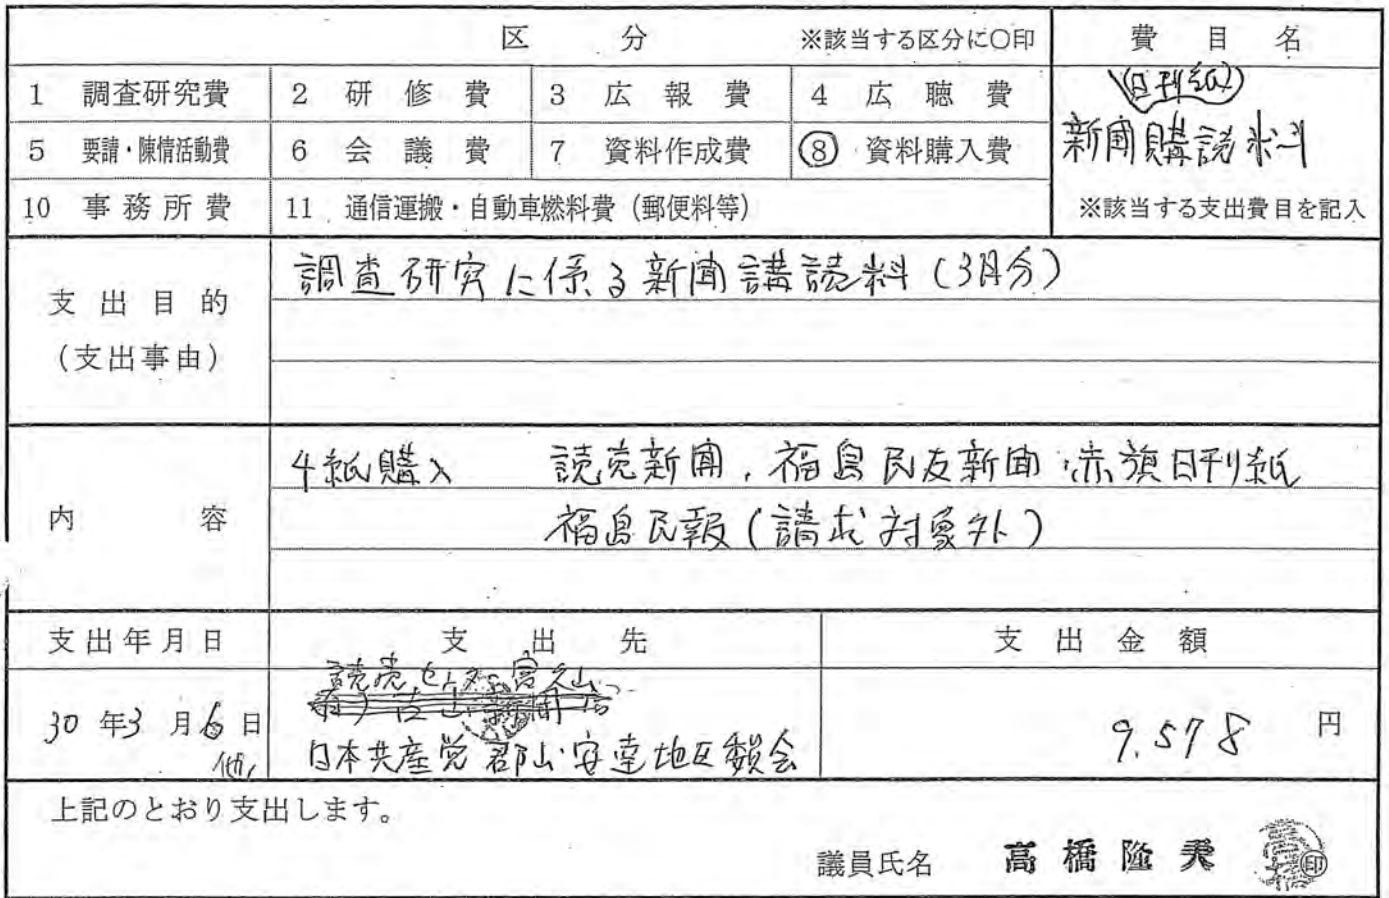 区　分　※該当する区分に○印　費目名
1 調査研究費　2 研修費　3 広報費　4 広聴費　(日刊紙)
5 要請・陳情活動費　6 会議費　7 資料作成費　⑧ 資料購入費　新聞購読料
10 事務所費　11 通信運搬・自動車燃料費（郵便料等）　※該当する支出費目を記入
支出目的
(支出事由)
調査研究に係る新聞講読料(3月分)
内容
4紙購入　読売新聞、福島民友新聞、赤旗日刊紙
福島民報(請求対象外)
支出年月日　支出先　支出金額
読売センター富久山
30年3月6日　他、
日本共産党郡山・安達地区委会
9,578円
上記のとおり支出します。
議員氏名　高橋隆　印